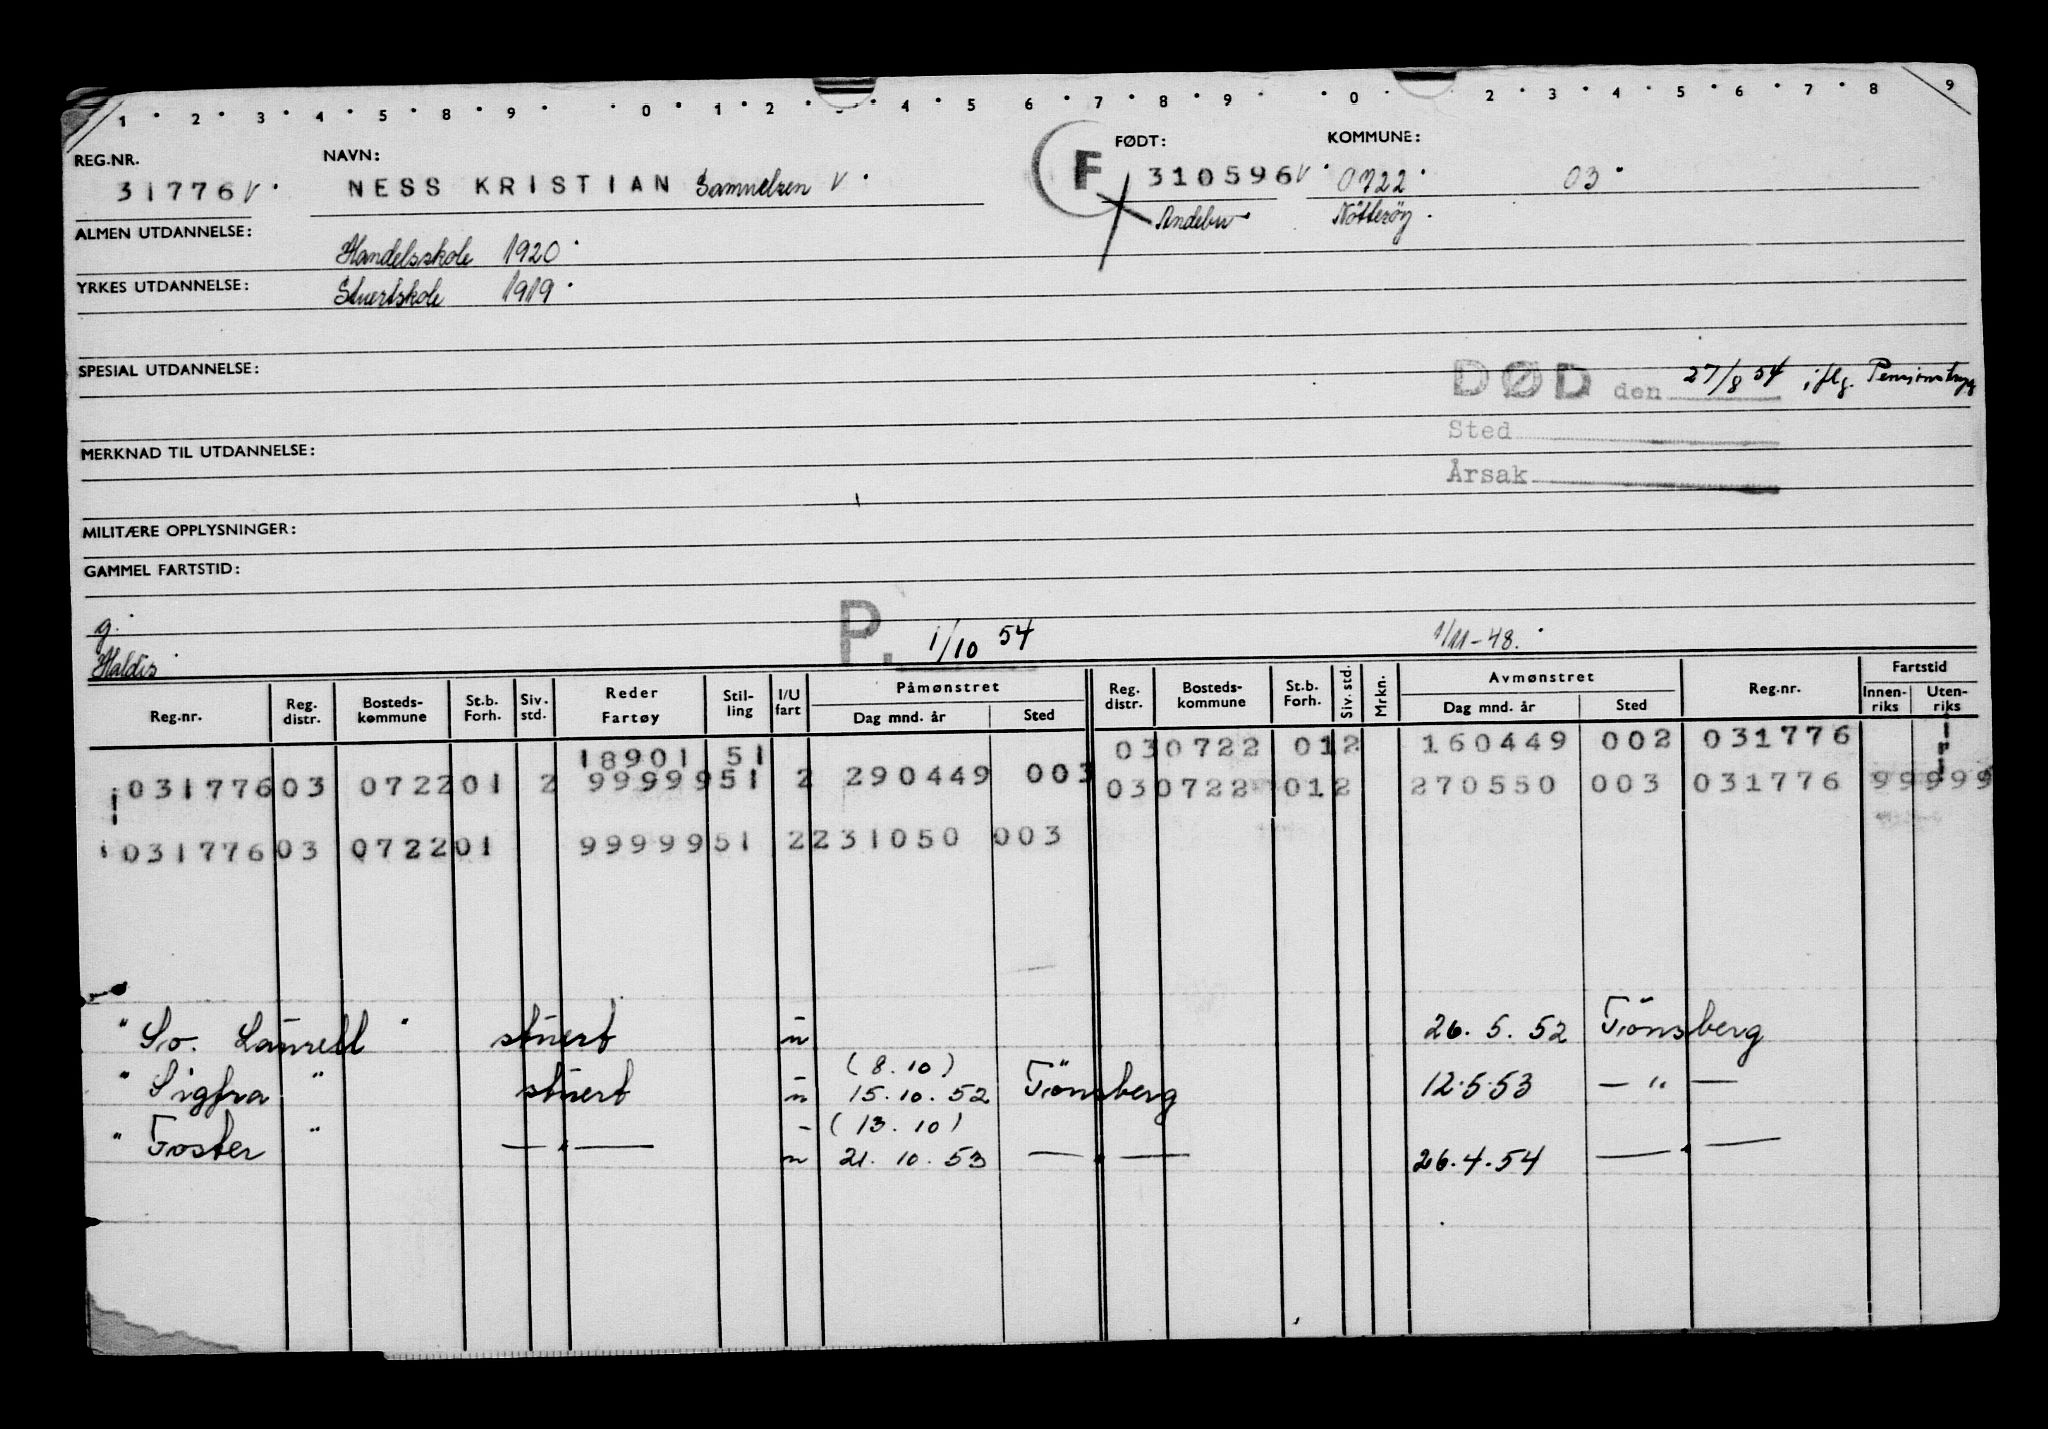 1 · 2 · 3 · 4 · 5 · 8 · 9 · · 0 · 1 · 2 · 4 · 5 6 · 7 · 8 · 9 · · 0 · 2 · 3 · 4 · 5 · 6 · 7 · 8 9
REG.NR. NAVN: F FØDT: KOMMUNE:
31776 V · NESS KRISTIAN Samuelsen V · 310596 V · 0722 · 03 ·
Andebu Nötteröy .
ALMEN UTDANNELSE: Handelsskole 1920 ·
YRKES UTDANNELSE: Stuertskole 1919 ·
SPESIAL UTDANNELSE:
DØD den 27/8 54 iflg. Pensjonstryg
Sted
MERKNAD TIL UTDANNELSE:
Årsak
MILITÆRE OPPLYSNINGER:
GAMMEL FARTSTID:
g. P. 1/10 54 1/11-48.
Haldis
Reg.nr. Reg. distr. Bosteds-kommune St.b. Forh. Siv. std. Reder Fartøy Stil-ling I/U fart Påmønstret Dag mnd. år Sted Reg. distr. Bosteds-kommune St.b. Forh. Siv. std. Mrkn. Avmønstret Dag mnd. år Sted Reg.nr. Fartstid Innen-riks Uten-riks
18901 51 030722 012 160449 002 031776
031776 03 0722 01 2 99999 51 2 290449 003 030722 012 270550 003 031776 99999
031776 03 0722 01 99999 51 2 231050 003
" So. Laurell " stuert u 26.5.52 Tönsberg
(8.10)
" Sigfra " stuert u 15.10.52 Tönsberg 12.5.53 — " —
(13.10)
" Toster " — " — u 21.10.53 — " — 26.4.54 — " —